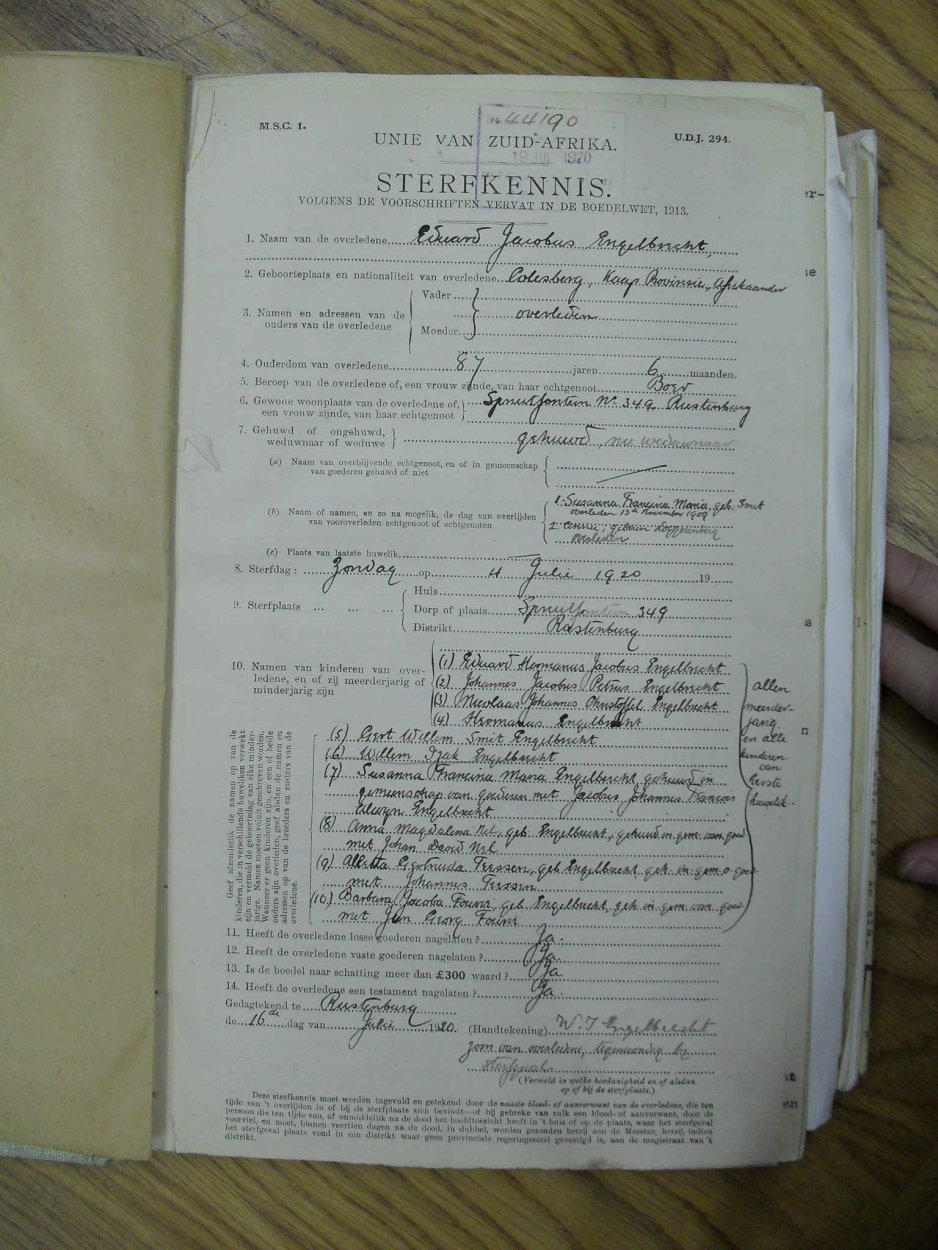 No 44190
M.S.C. 1.
U.D.J. 294.
UNIE VAN ZUID-AFRIKA.
19 JUL 1920
STERFKENNIS.
VOLGENS DE VOORSCHRIFTEN VERVAT IN DE BOEDELWET, 1913.
1. Naam van de overledene Eduard Jacobus Engelbrecht,
2. Geboorteplaats en nationaliteit van overledene Colesberg, Kaap Provinsie, Afrikaander
3. Namen en adressen van de ouders van de overledene
Vader
overleden
Moeder
4. Ouderdom van overledene 87 jaren 6 maanden.
5. Beroep van de overledene of, een vrouw zijnde, van haar echtgenoot Boer
6. Gewone woonplaats van de overledene of, een vrouw zijnde, van haar echtgenoot
Spruitfontein No 349, Rustenburg
7. Gehuwd of ongehuwd, weduwnaar of weduwe
gehuwd, nu weduwnaar
(a) Naam van overblijvende echtgenoot, en of in gemeenschap
van goederen gehuwd of niet
(b) Naam of namen, en zo na mogelik, de dag van overlijden
van vooroverleden echtgenoot of echtgenoten
1. Susanna Francina Maria, geb. Smit
overleden 13e November 1909
2.
overleden
(c) Plaats van laatste huwelik
8. Sterfdag: Zondag op 4 Julie 1920 19
9. Sterfplaats ... ... ...
Huis
Dorp of plaats Spruitfontein 349
Distrikt Rustenburg
10. Namen van kinderen van over-
ledene, en of zij meerderjarig of
minderjarig zijn
(1) Eduard Hermanus Jacobus Engelbrecht
(2) Johannes Jacobus Petrus Engelbrecht
(3) Nicolaas Johannes Christoffel Engelbrecht
(4) Hermanus Engelbrecht
(5) Gert Willem Smit Engelbrecht
(6) Willem Izak Engelbrecht
(7) Susanna Francina Maria Engelbrecht gehuwd in
gemeenschap van goederen met Jacobus Johannes Francois
Engelbrecht
(8) Anna Magdalena Nel, geb. Engelbrecht, gehuwd in gem van goed
met Johan David Nel
(9) Engelbrecht geh. in gem v goed
met Johannes
(10) Barbara Jacoba Fourie, geb Engelbrecht, geh in gem van goed
met Jan Georg Fourie
allen
meerder-
jarig
en alle
kinderen
van
eerste
huwelik.
Geef afzonderlik de namen op van de
kinderen, die in verschillende huweliken verwekt
zijn en vermeld de geboortedag van elke minder-
jarige. Namen moeten voluit geschreven worden.
Wanneer er geen kinderen zijn, en een of beide
ouders zijn overleden, geef alsdan de namen en
adressen op van de broeders en zusters van de
overledene.
11. Heeft de overledene losse goederen nagelaten? Ja.
12. Heeft de overledene vaste goederen nagelaten? Ja.
13. Is de boedel naar schatting meer dan £300 waard? Ja
14. Heeft de overledene een testament nagelaten? Ja.
Gedagtekend te Rustenburg
de 16de dag van Julie 1920.
(Handtekening) W. I Engelbrecht
zoon van overledene, tegenwoordig by
sterfgeval
(Vermeld in welke hoedanigheid en of alsdan
op of bij de sterfplaats.)
Deze sterfkennis moet worden ingevuld en getekend door de naaste bloed- of aanverwant van de overledene, die ten
tijde van 't overlijden in of bij de sterfplaats zich bevindt—of bij gebreke van zulk een bloed- of aanverwant, door de
persoon die ten tijde van, of onmiddelik na de dood het hoofdtoezicht heeft in 't huis of op de plaats, waar het sterfgeval
voorviel, en moet, binnen veertien dagen na de dood, in dubbel, worden gezonden hetzij aan de Meester, hetzij, indien
het sterfgeval plaats vond in een distrikt waar geen provinciale regeringszetel gevestigd is, aan de magistraat van 't
distrikt.